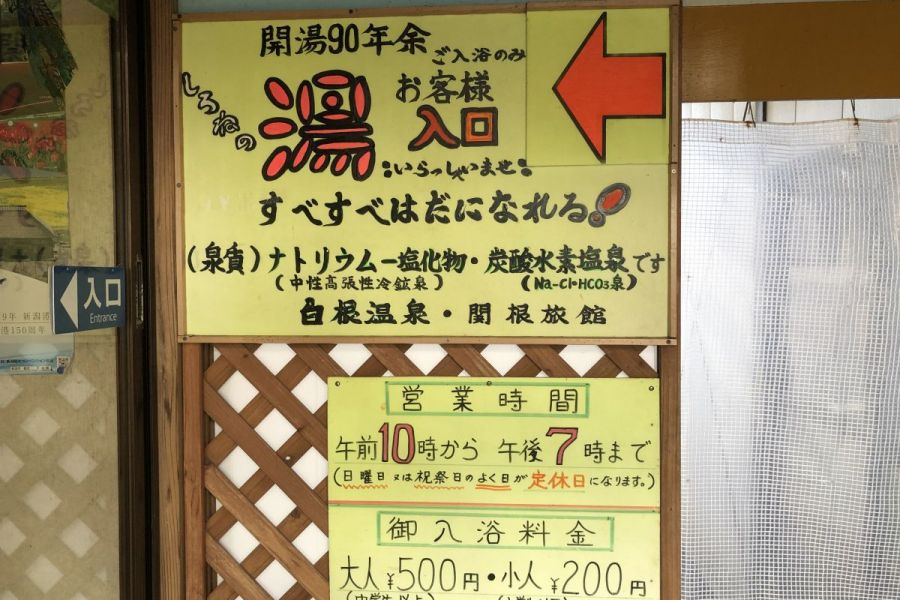 開湯90年余
ご入浴のみ
お客様
入口
しろねの
湯
いらっしゃいませ
すべすべはだになれる!
(泉質)ナトリウムー塩化物・炭酸水素塩泉です
(中性高張性冷鉱泉)
(Na-Cl・HCO3泉)
白根温泉・関根旅館
入口
Entrance
港150周年
営業時間
午前10時から 午後7時まで
(日曜日又は祝祭日のよく日が定休日になります。)
御入浴料金
大人¥500円・小人¥200円